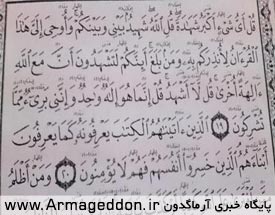 قُلْ أَيُّ شَيْءٍ أَكْبَرُ شَهَٰدَةً قُلِ ٱللَّهُ شَهِيدٌۢ بَيْنِي وَبَيْنَكُمْ وَأُوحِيَ إِلَيَّ هَٰذَا
ٱلْقُرْءَانُ لِأُنذِرَكُم بِهِۦ وَمَنۢ بَلَغَ أَئِنَّكُمْ لَتَشْهَدُونَ أَنَّ مَعَ ٱللَّهِ
ءَالِهَةً أُخْرَىٰ قُل لَّآ أَشْهَدُ قُلْ إِنَّمَا هُوَ إِلَٰهٌ وَٰحِدٌ وَإِنَّنِي بَرِيٓءٌ مِّمَّا
تُشْرِكُونَ ١٩ ٱلَّذِينَ ءَاتَيْنَٰهُمُ ٱلْكِتَٰبَ يَعْرِفُونَهُۥ كَمَا يَعْرِفُونَ
أَبْنَآءَهُمُ ٱلَّذِينَ خَسِرُوٓا۟ أَنفُسَهُمْ فَهُمْ لَا يُؤْمِنُونَ ٢٠ وَمَنْ أَظْلَمُ
پایگاه خبری آرماگدون www.Armageddon.ir